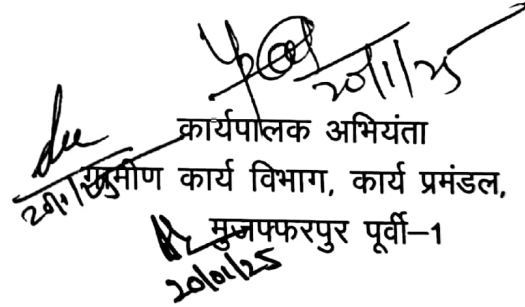 20/1/25
कार्यपालक अभियंता
20/1/25 ग्रामीण कार्य विभाग, कार्य प्रमंडल,
मुजफ्फरपुर पूर्वी–1
20/01/25